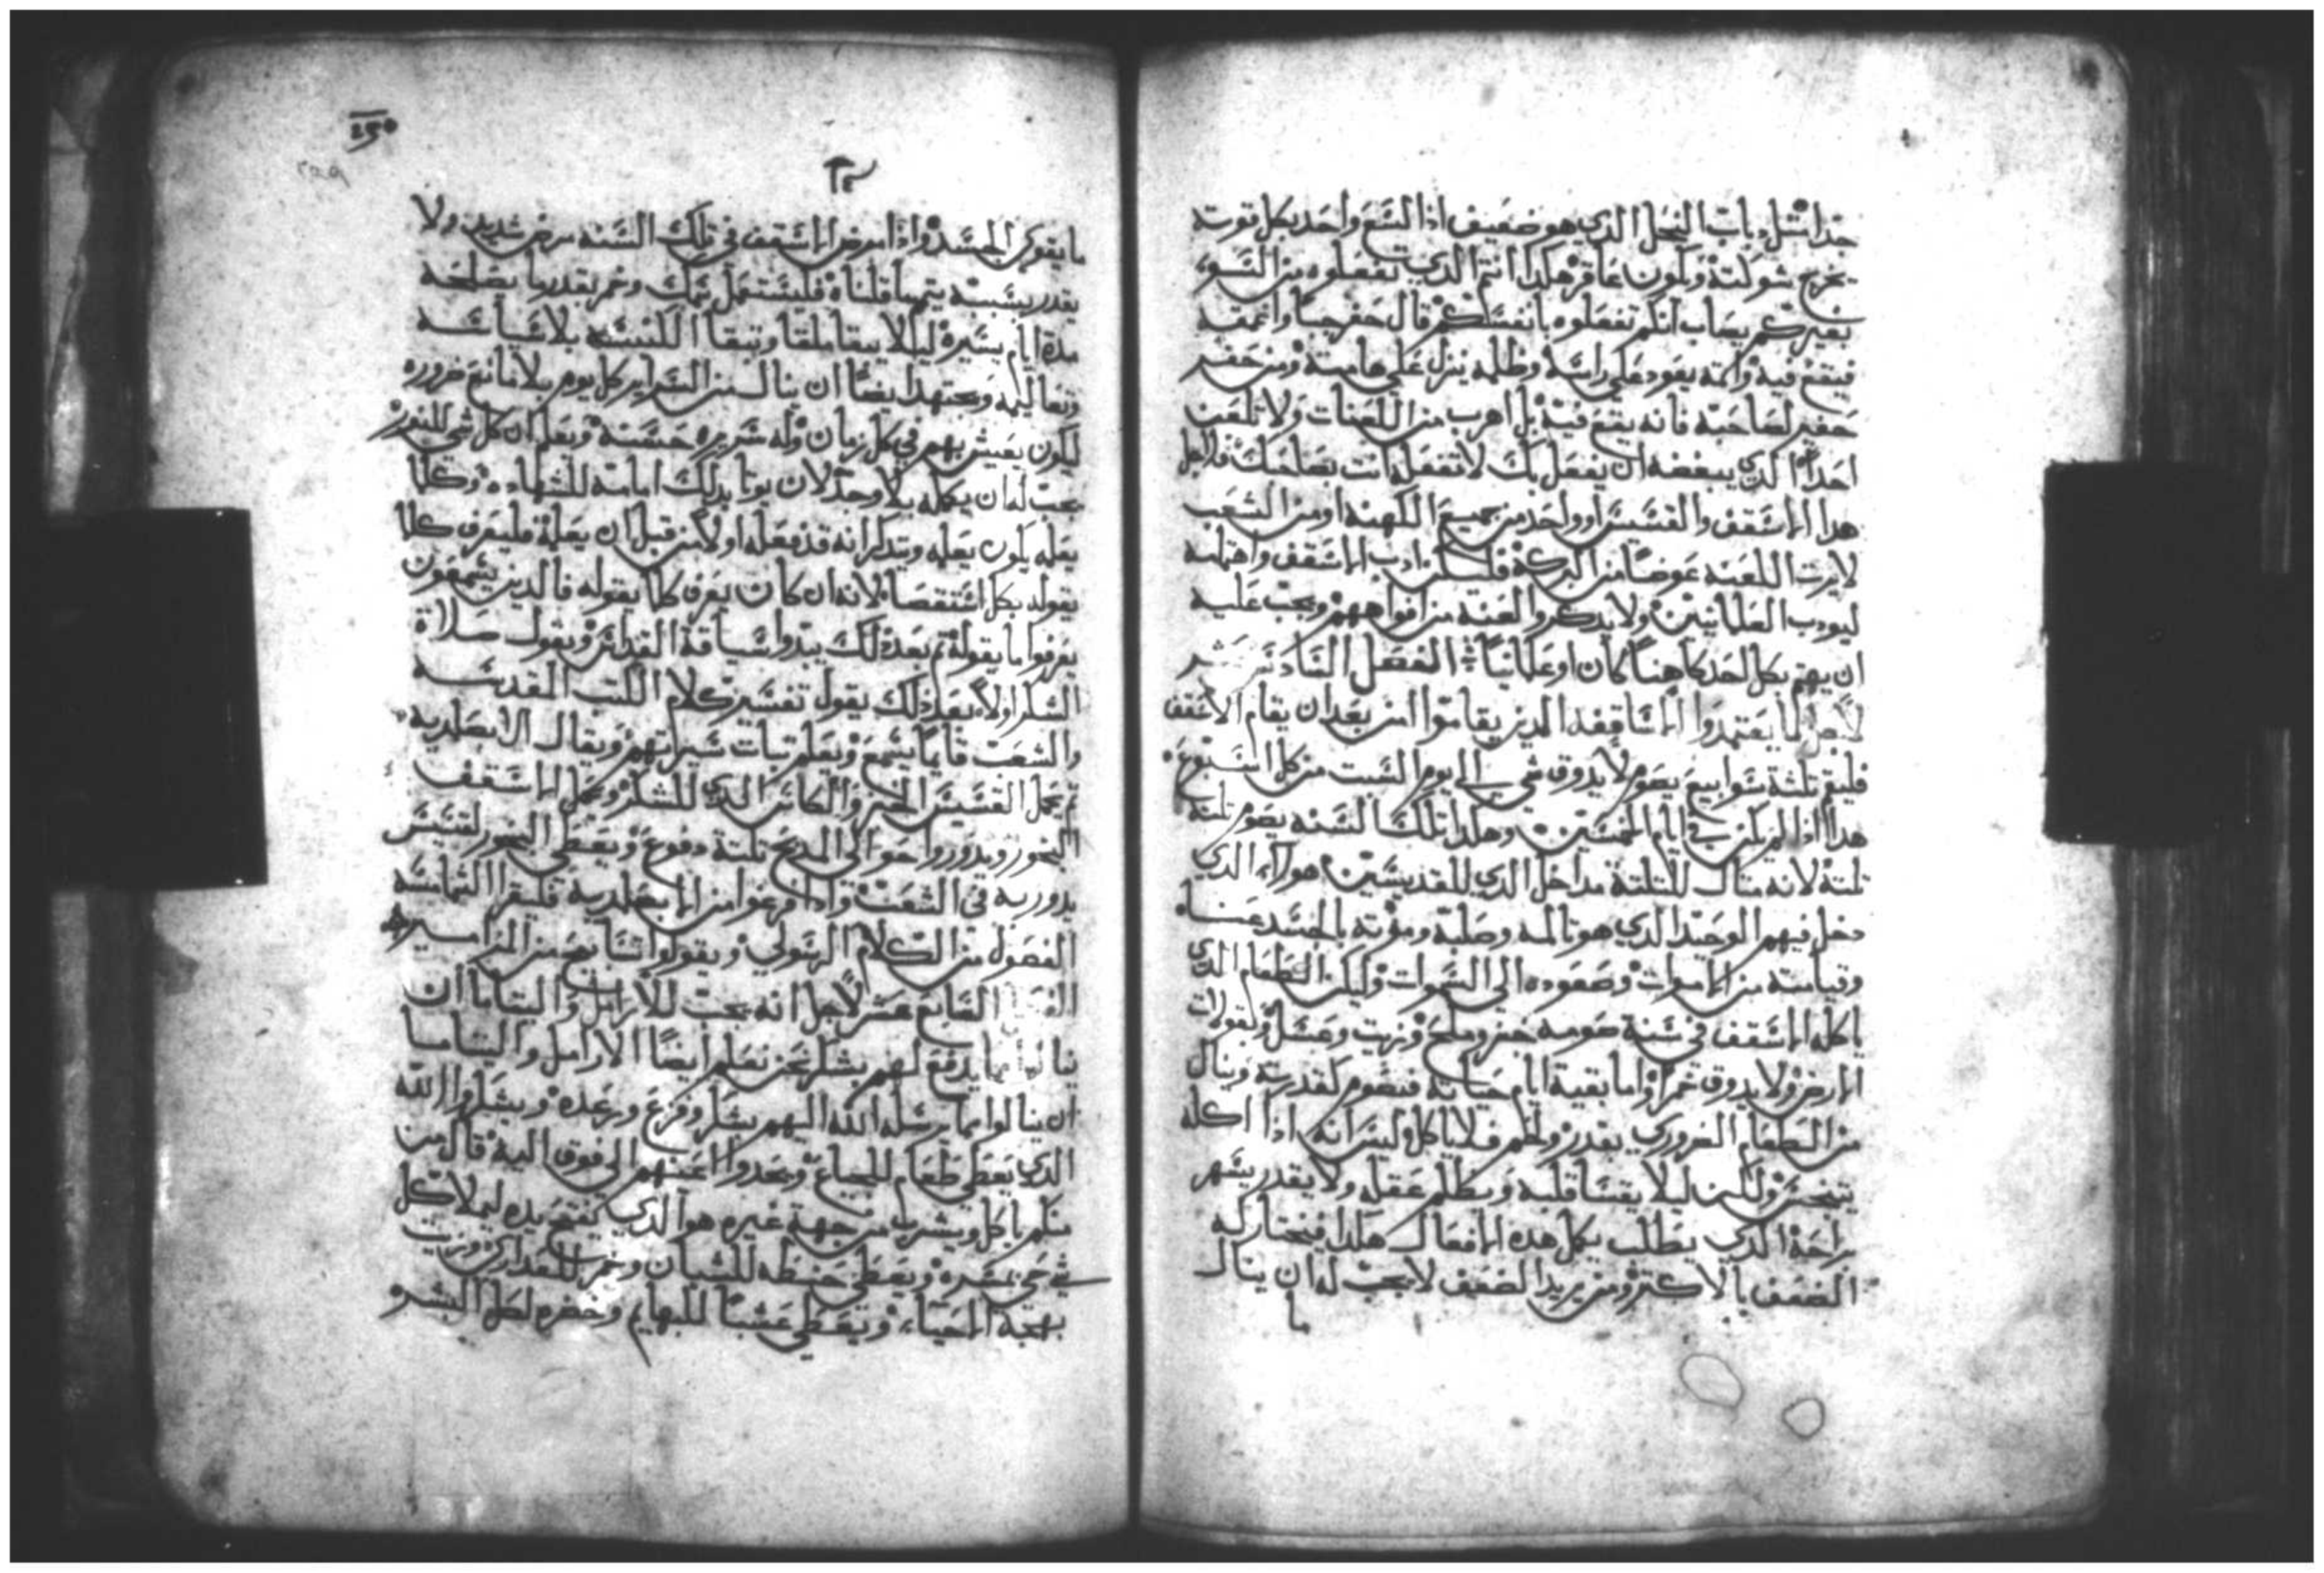 جدا مثل دباب النحل الدي هو ضعيف ادا لسع واحد بكل قوته
يخرج شوكته ويكون عاقر هكدا انتم الدي تفعلوه من السوء
بغيركم يصاب انكم تفعلوه بانفسكم قال حفر جباً واعمقه
فيقع فيه واتمه يعود على راسه وظلمه ينزل على هامته ومن حفر
حفير لصاحبه فانه يقع فيه بل اهرب من اللعنات ولا تلعن
احداً الدي يبغضه ان يفعل بك لا تفعله انت بصاحبك فلاجل
هدا الاسقف والقسيس او واحد من جميع الكهنه او من الشعب
لا يرث اللعنه عوضاً من البركة فليكن ادب الاسقف واهتمامه
ليودب العلمانيين ولا يدكروا لعنه من افواههم ويجب عليه
ان يهتم بكل احد كاهناً كان او علمانياً الفصل السادس عشر
لاجل لما يعتمدوا الاساقفه الدين يقاموا امن بعد ان يقام الاسقف
فليقم تلتة سوابيع يصوم لا يدوق شي الى يوم السبت من كل اسبوع
هدا ادا لم يكن في ايام الخمسين وهكدا تلك السنه يصوم تلتة
تلتة لانه متال للتلتة مداخل الدي للقديسين هولاء الدي
دخل فيهم الوحيد الدي هو تالمه وصلبه وموته بالجسد عنا
وقيامته من الاموات وصعوده الى السموات وليكن الطعام الدي
ياكله الاسقف في سنة صومه خبز وملح وزيت وعسل وبقولات
الارض ولا يدوق خمراً واما بقية ايام حياته فيصوم كقدرته وينال
من الطعام الضروري بقدر ولحم فلا ياكل وليس انه ادا اكله
يتنجس ولكن ليلا يقسا قلبه ويظلم عقله ولا يقدر يسهر
براحة الدي يطلب بكل هده الافعال هكدا فيختار له
الضعف بالاكتر ومن يريد الضعف لا يجب له ان ينال
ما
٢٥٠
ما يقوي الجسد وادا مرض الاسقف في تلك السنه مرض شديد ولا
يقدر بسببه يتم ما قلناه فليستعمل سمك وخمر بقدر ما يصلحه
مدة ايام يسيرة ليلا يبقا ملقا وتبقا الكنيسه بلا سياسه
وتعاليمه ويجتهد ايضاً ان ينال من السراير كل يوم بلا مانع ضروره
ليكون يعيش بهم في كل زمان وله سريره حسنة ويعلم ان كل شي للندور
يجب له ان يكمله بلا وجد لان يوتا بدلك امامه للشهاده وكلما
يعلمه يكون يعمله ويتدكر انه قد فعله اولاً من قبل ان يعلمه فليعرف كلما
يقوله بكل استقصا لانه ان كان يعرف كلما يقوله فالدين يسمعون
يعرفوا ما يقوله تم بعد دلك يبتدوا سياقة القداس ويقول صلاة
الشكر اولاً بعد دلك يقول تفسير كلام الكتب المقدسه
والشعب قايماً يسمع ويعلم تبات سيراتهم ويقال الابصلمديه
تم يحمل القسيس الخبز والكاس الدي للشكر ويحمل الاسقف
البخور ويدوروا حوالى المدبح تلتة دفوع ويعطي البخور لقسيس
يدور به في الشعب وادا فرغوا من الابصلمديه فليقرا الشمامسه
الفصول من الكلام الرسولي ويقولوا اتنا بعض من المزامير
الفصل السابع عشر لاجل انه يجب للارامل واليتاما ان
ينالوا مما يدفع لهم بشكر نحن نعلم ايضاً الارامل واليتاما
ان ينالوا بما يرسله الله اليهم بشكر وفزع ورعده ويشكروا الله
الدي يعطي طعام للجياع ويجدوا اعينهم الى فوق اليه قال من
منكم ياكل ويشرب من جهة غيره هو الدي يفتح يده ليملا كل
شي حي بمسره ويعطي حنطه للشبان وخمر للعداري وزيت
بهجة الاحياء ويعطي عشباً للبهايم وخضره لكل البشر و